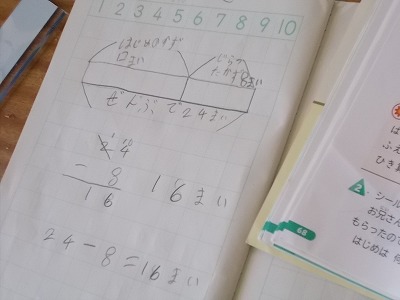 1 2 3 4 5 6 7 8 9 10
はじめのかず
□まい
もらっ
たかず
8まい
ぜんぶで24まい
24
- 8
16
16まい
24-8=16まい
は
ふえ
ひき算
2 シール
お兄さん
もらったので
はじめは 何
68